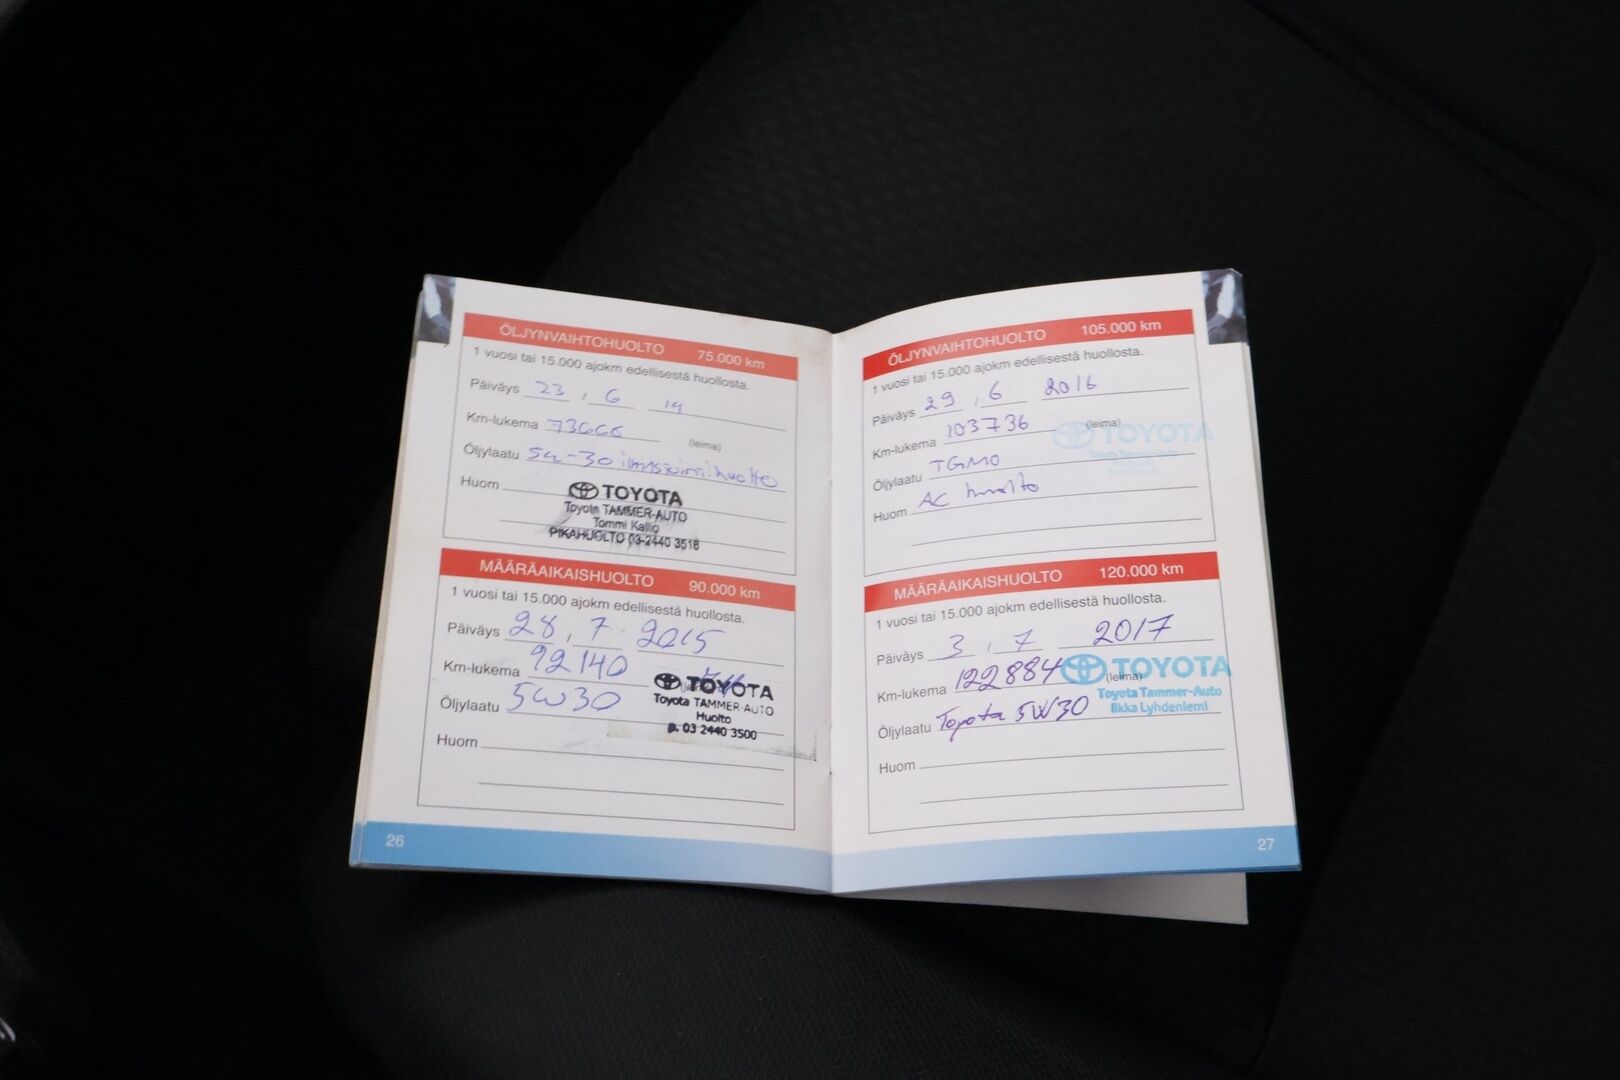 ÖLJYNVAIHTOHUOLTO 75.000 km
1 vuosi tai 15.000 ajokm edellisestä huollosta.
Päiväys 23 . 6 14
Km-lukema 73666
(leima)
Öljylaatu 5w-30 ilmastointihuolto
Huom
TOYOTA
Toyota TAMMER-AUTO
Tommi Kallio
PIKAHUOLTO 03-2440 3518
MÄÄRÄAIKAISHUOLTO 90.000 km
1 vuosi tai 15.000 ajokm edellisestä huollosta.
Päiväys 28 . 7 2015
Km-lukema 92140
TOYOTA
Öljylaatu 5W30
Toyota TAMMER-AUTO
Huolto
p. 03 2440 3500
Huom
26
ÖLJYNVAIHTOHUOLTO 105.000 km
1 vuosi tai 15.000 ajokm edellisestä huollosta.
Päiväys 29 . 6 2016
Km-lukema 103736
(leima)
TOYOTA
Toyota Tammer-Auto
Öljylaatu TGMO
Huom AC huolto
MÄÄRÄAIKAISHUOLTO 120.000 km
1 vuosi tai 15.000 ajokm edellisestä huollosta.
Päiväys 3 . 7 2017
Km-lukema 122884
(leima)
TOYOTA
Toyota Tammer-Auto
Ilkka Lyhdeniemi
Öljylaatu Toyota 5W30
Huom
27